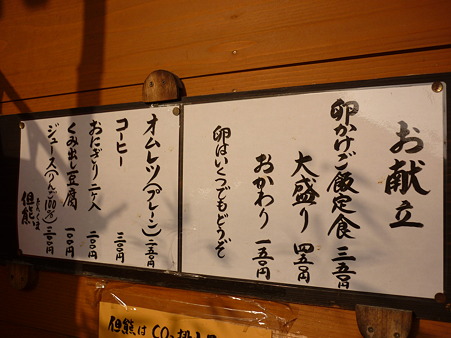 お献立
卵かけご飯定食 三五〇円
大盛り 四五〇円
おかわり 一五〇円
卵はいくつでもどうぞ
オムレツ(プレーン) 二五〇円
コーヒー 三〇〇円
おにぎり 二ケ入 二〇〇円
くみ出し豆腐 一〇〇円
ジュース(りんご100%) 三〇〇円
但熊
但熊は CO₂